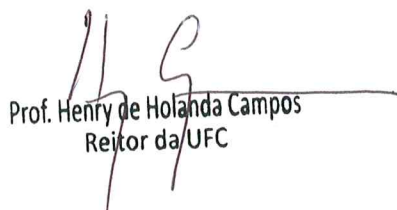 Prof. Henry de Holanda Campos
Reitor da UFC